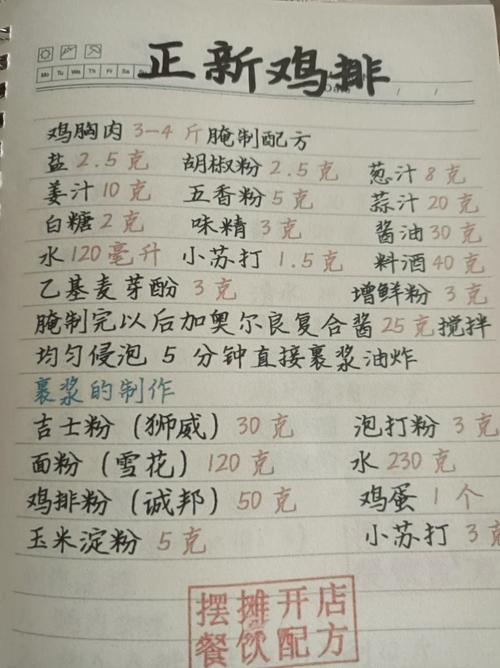 Mo Tu We Th Fr Sa
正新鸡排
鸡胸肉 3-4 斤腌制配方
盐 2.5 克 胡椒粉 2.5 克 葱汁 8 克
姜汁 10 克 五香粉 5 克 蒜汁 20 克
白糖 2 克 味精 3 克 酱油 30 克
水 120 毫升 小苏打 1.5 克 料酒 40 克
乙基麦芽酚 3 克 增鲜粉 3 克
腌制完以后加奥尔良复合酱 25 克搅拌
均匀侵泡 5 分钟直接裹浆油炸
裹浆的制作
吉士粉（狮威）30 克 泡打粉 3 克
面粉（雪花）120 克 水 230 克
鸡排粉（诚邦）50 克 鸡蛋 1 个
玉米淀粉 5 克 小苏打 3 克
摆摊开店
餐饮配方